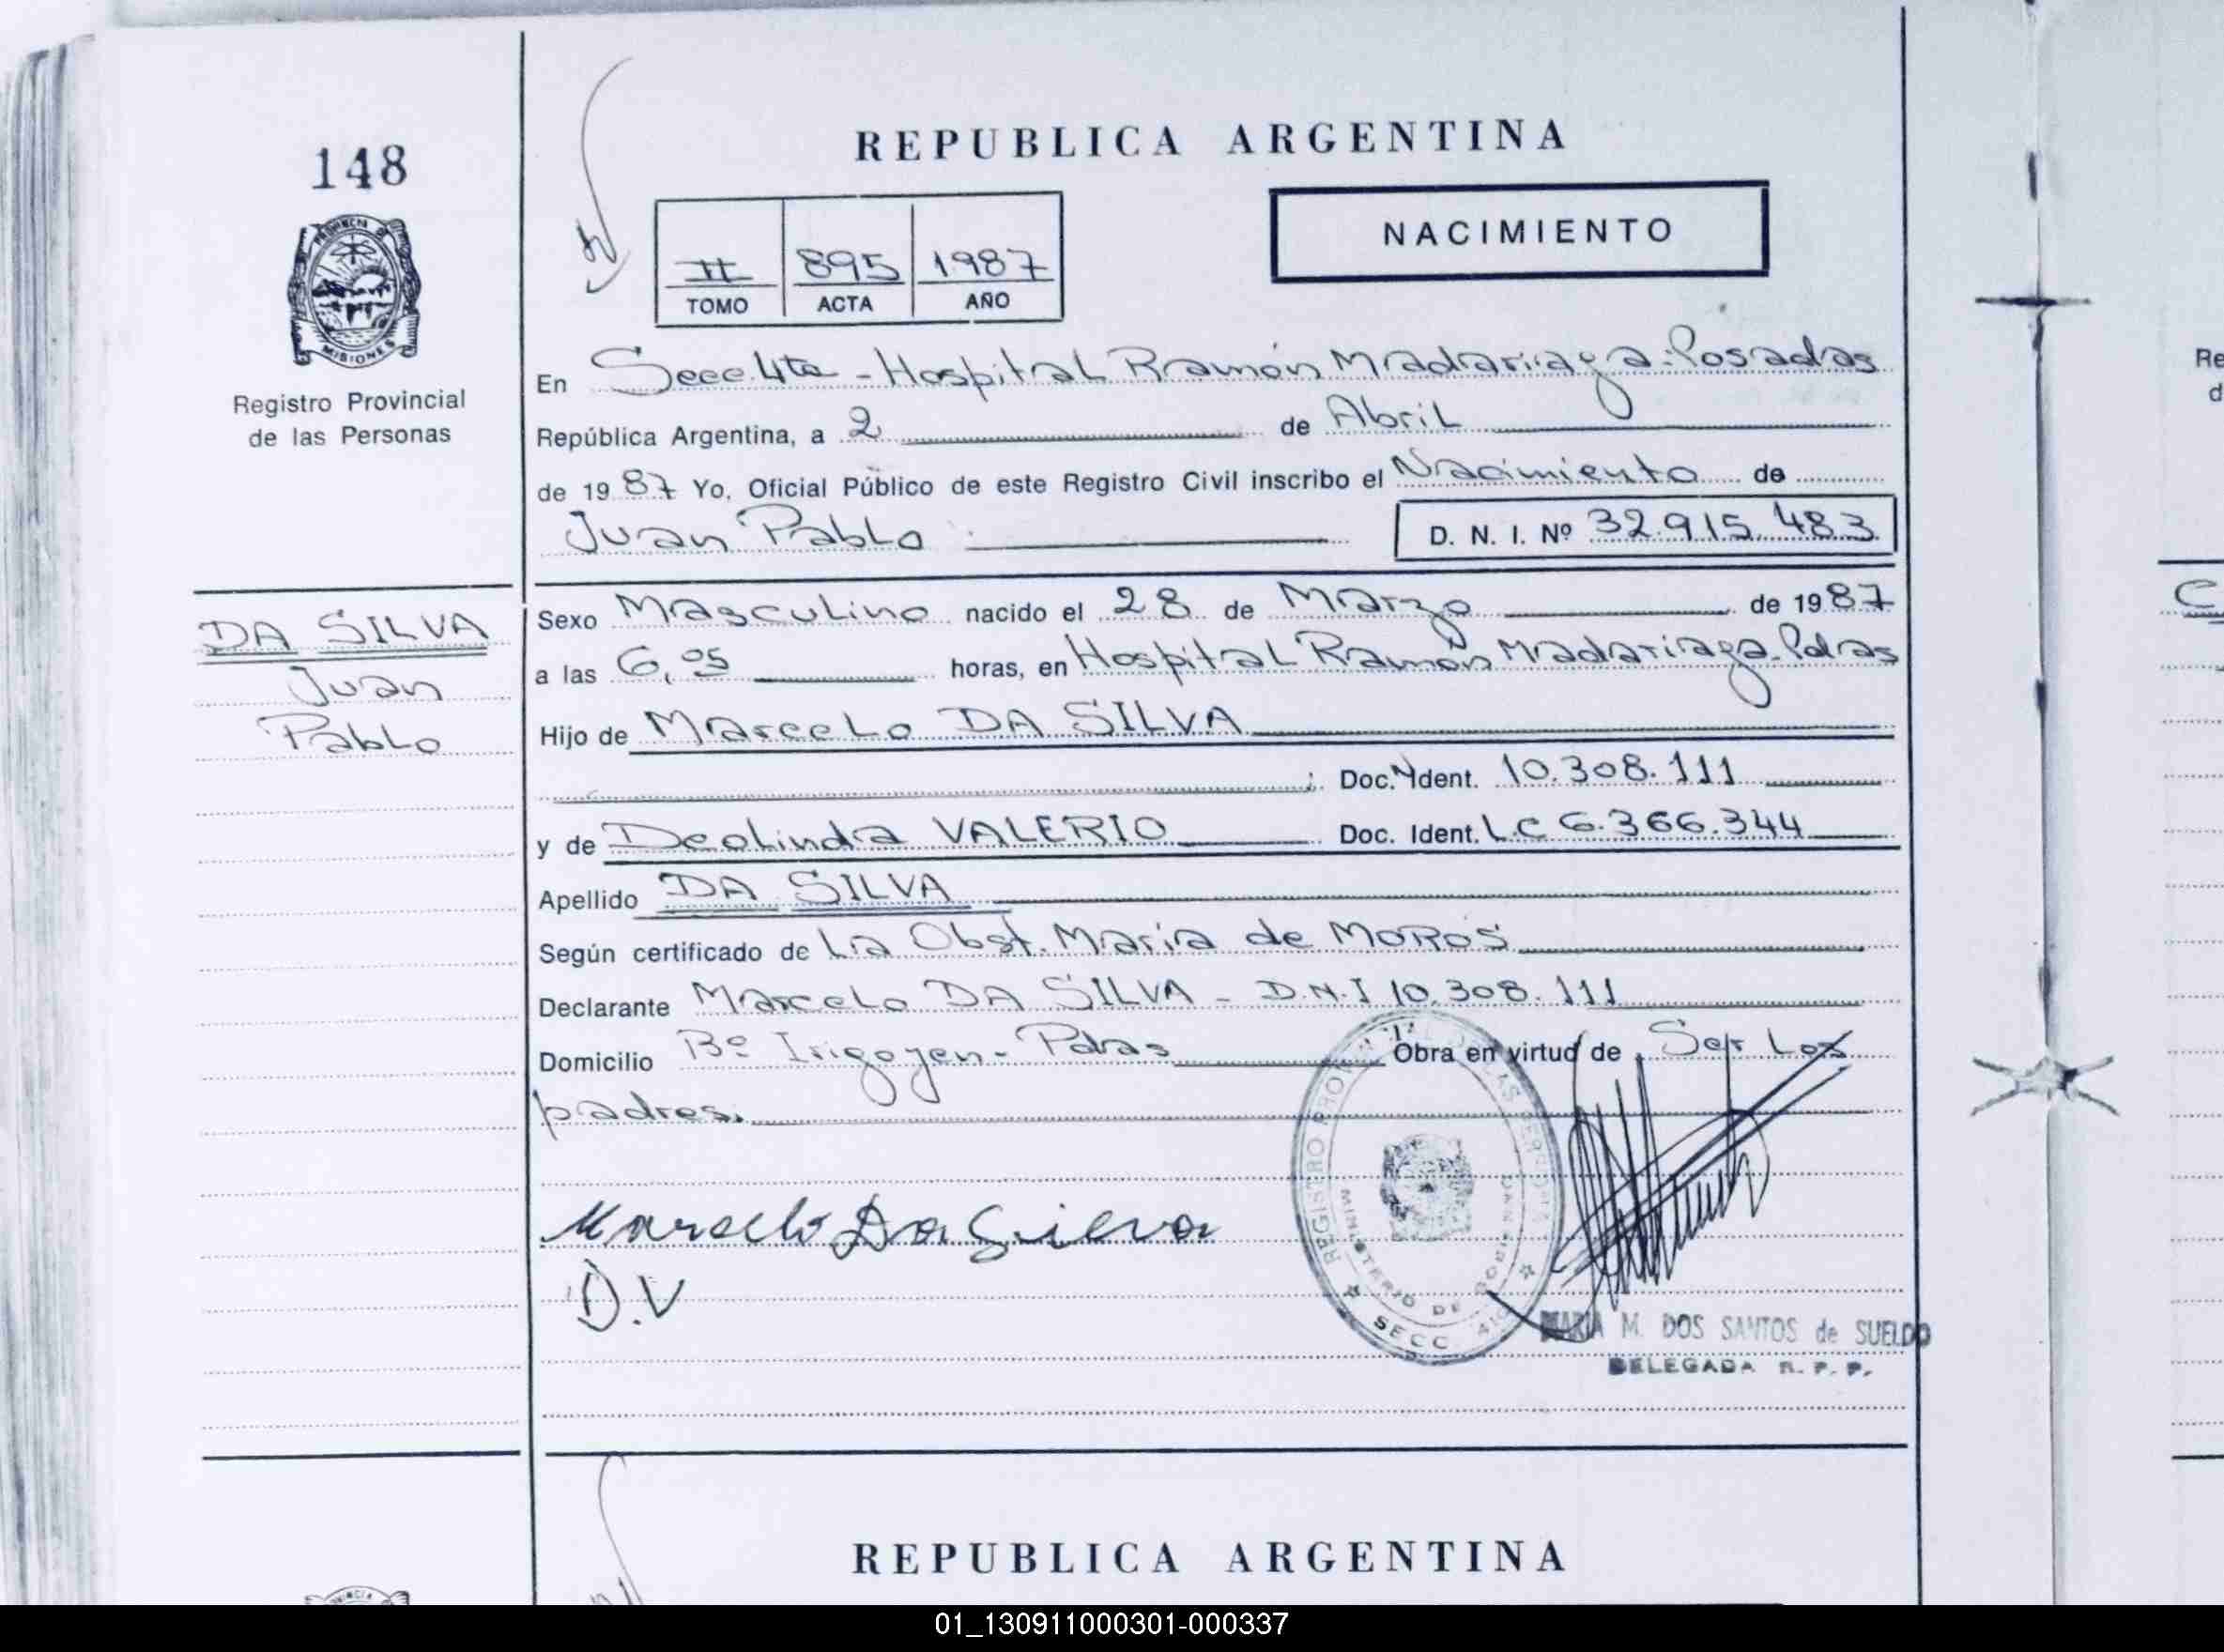 148
REPUBLICA ARGENTINA
NACIMIENTO
II 895 1987
TOMO ACTA AÑO
PROVINCIA DE
MISIONES
Registro Provincial
de las Personas
En Secc. 4ta - Hospital Ramón Madariaga - Posadas
República Argentina, a 2 de Abril
de 1987 Yo, Oficial Público de este Registro Civil inscribo el Nacimiento de
Juan Pablo
D. N. I. Nº 32.915.483
DA SILVA
Juan
Pablo
Sexo Masculino nacido el 28 de Marzo de 1987
a las 6,05 horas, en Hospital Ramón Madariaga - Pdas
Hijo de Marcelo DA SILVA
Doc. Ident. 10.308.111
y de Deolinda VALERIO Doc. Ident. L.C 6.366.344
Apellido DA SILVA
Según certificado de La Obst. María de MOROS
Declarante Marcelo DA SILVA - D.N.I 10.308.111
Domicilio Bº Irigoyen - Pdas Obra en virtud de Ser Los
padres.
Marcelo Da Silva
D.V
REGISTRO PROVINCIAL DE LAS PERSONAS
MINISTERIO DE GOBIERNO
SECC. 4ta
MARIA M. DOS SANTOS de SUELDO
DELEGADA R. P. P.
REPUBLICA ARGENTINA
Re
d
C
01_130911000301-000337